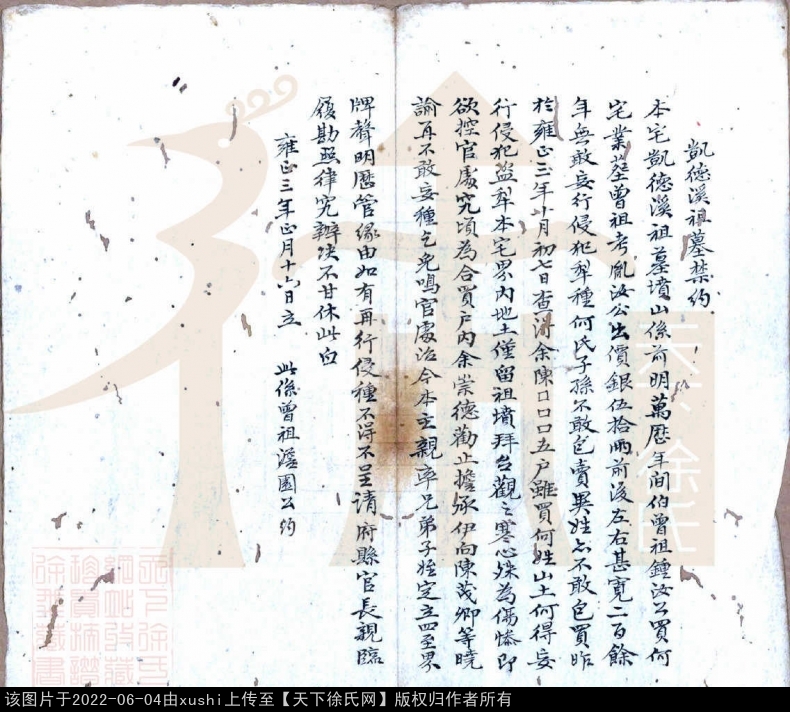 凱德溪祖墓禁約
本宅凱德溪祖墓墳山係前明萬厯年间伯曾祖鍾汝公買何
宅業塟曾祖考胤汝公出價銀伍拾兩前後左右甚寬二百餘
年無敢妄行侵犯犁種何氏子孫不敢包賣異姓亦不敢包買昨
於雍正三年十月初七日查得余陳口口口五户雖買何姓山土何得妄
行侵犯盜犁本宅界内地土僅留祖墳拜台觀之寒心殊為傷惨即
欲控官處究頃為合買户内余崇德勸止擔承伊向陳茂卿等曉
諭再不敢妄種乞免鳴官處治今本主親率兄弟子姪定立四至界
牌聲明歷管缘由如有再行侵種不得不呈请府縣官長親臨
履勘照律究辦决不甘休此白
雍正三年正月十六日立 此係曾祖澹園公約
天下徐氏
该图片于2022-06-04由xushi上传至【天下徐氏网】版权归作者所有